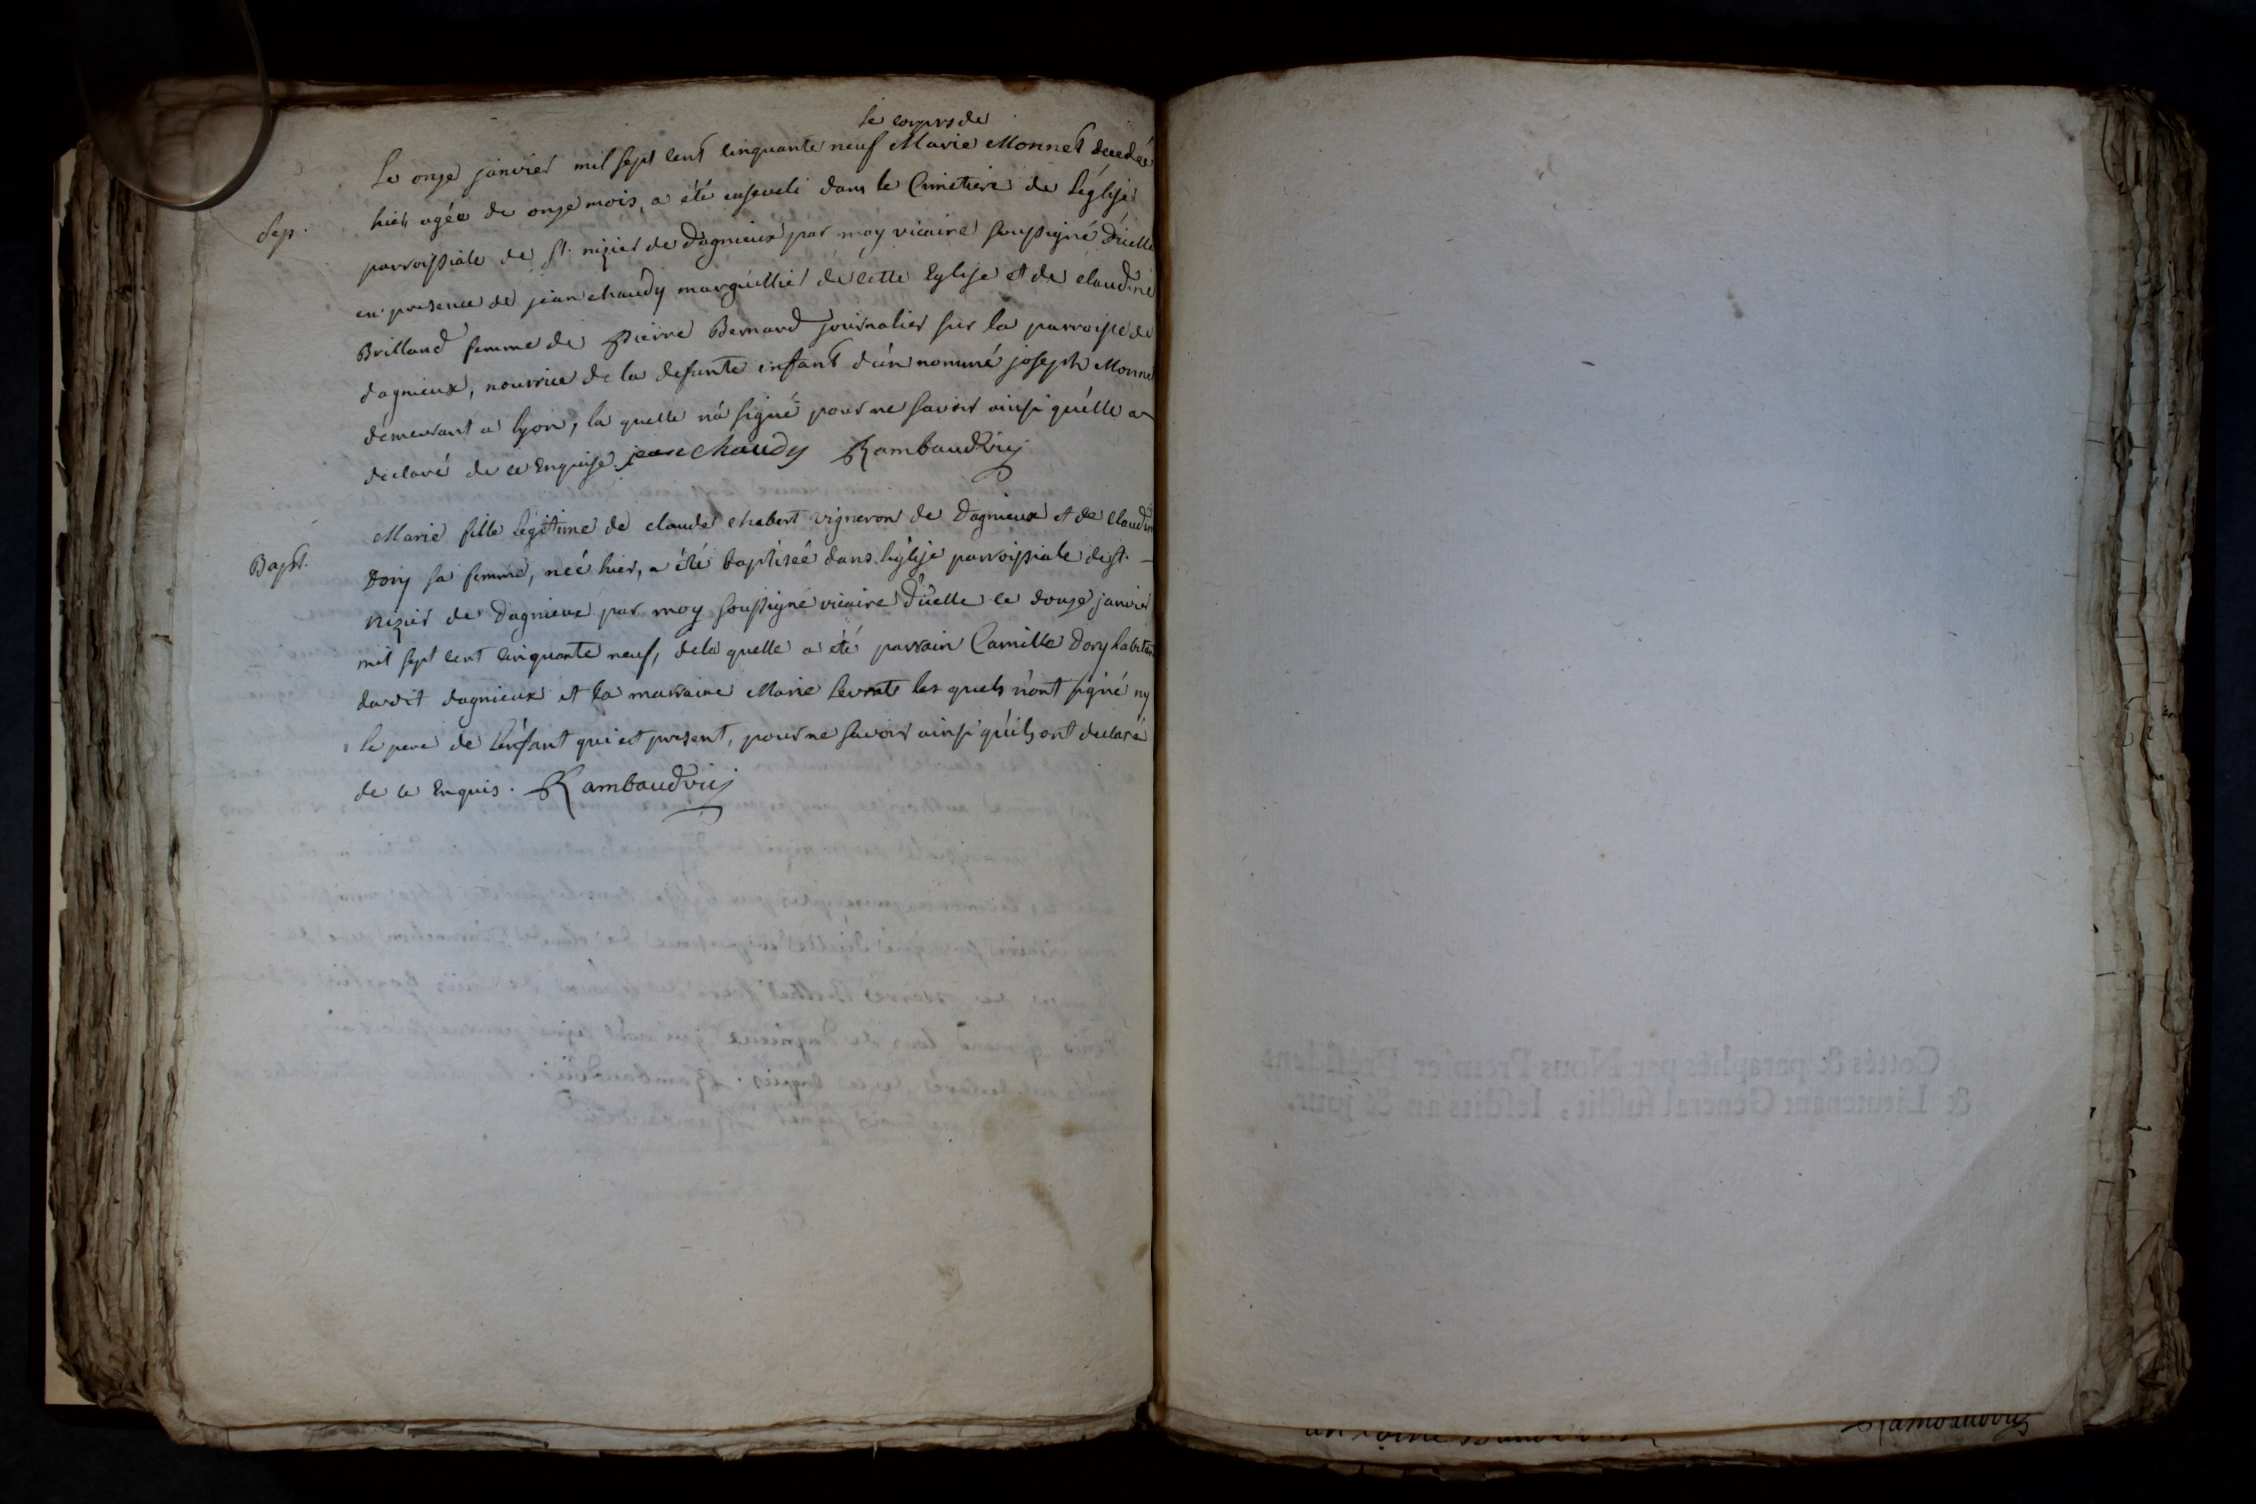 le corps de
Le onze janvier mil sept cent cinquante neuf Marie Monnet decedée
Sep.
hier agée de onze mois, a été enseveli dans le Cimetiere de l'église
parroissiale de st. nizier de Dagnieux par moy vicaire soussigné d'icelle
en presence de jean chaudy marguillier de cette Eglise et de claudine
Brilland femme de Pierre Bernard journalier sur la parroisse de
dagnieux, nourrice de la defunte enfant d'un nommé joseph Monnet
demeurant a lyon, la quelle n'a signé pour ne savoir ainsi qu'elle a
declaré de ce Enquise. jean chaudy Rambaud vic.
Marie fille légitime de claude chabert vigneron de Dagnieux et de Claudine
Bapt.
Dory sa femme, née hier, a été baptisée dans l'église parroissiale de st.
nizier de Dagnieux par moy soussigné vicaire d'icelle ce douze janvier
mil sept cent cinquante neuf, de la quelle a été parrain Camille Dory habitant
dudit dagnieux et la marraine Marie Levrat les quels n'ont signé ny
le pere de l'enfant qui est present, pour ne savoir ainsi qu'ils ont declaré
de ce Enquis. Rambaud vic.
Cottés & paraphés par Nous Premier Président
& Lieutenant Général susdit, lesdits an & jour.
Rambaud vic.